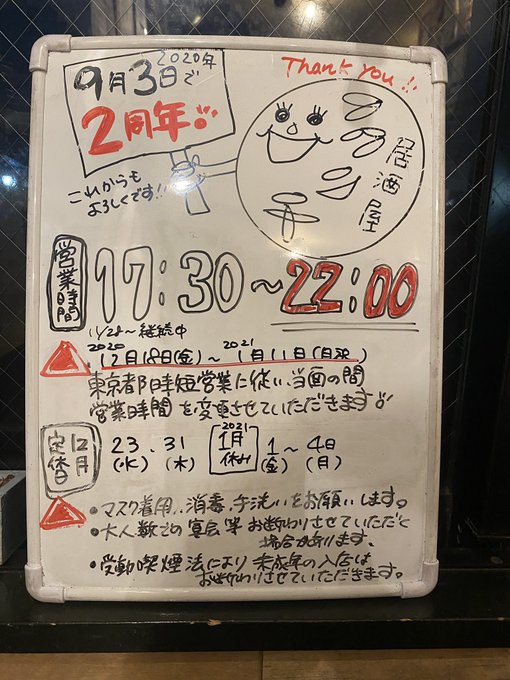 2020年
9月3日で
2周年!!
Thank you!!
これからも
よろしくです!!
居酒屋
営業時間
17:30~22:00
11/28~継続中
2020 2021
12月18日(金)~1月11日(月祝)
東京都時短営業に従い、当面の間
営業時間を変更させていただきます!!
12月
定休
23.31
(水)(木)
2021
1月
休み
1~4日
(金)(月)
・マスク着用、消毒、手洗いをお願いします。
・大人数での宴会等お断わりさせていただく
場合があります。
・受動喫煙法により未成年の入店は
お断わりさせていただきます。